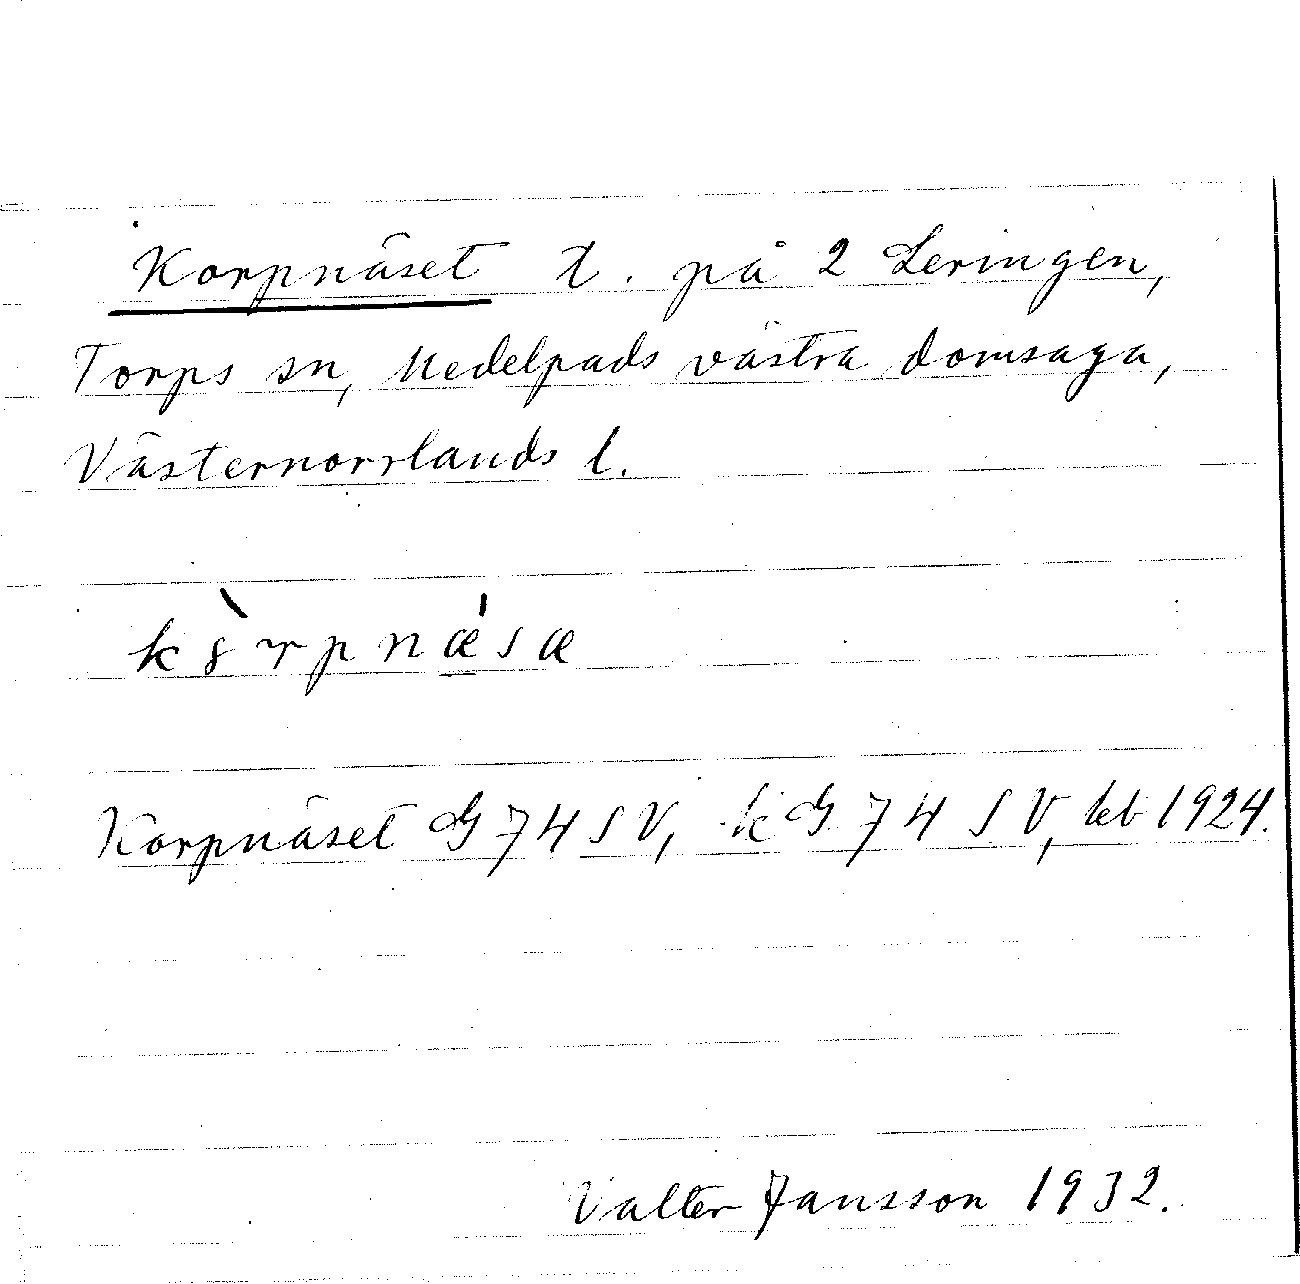 Korpnäset t. på 2 Leringen,
Torps sn, Medelpads västra domsaga,
Västernorrlands l.
Korpnäset G 74 SV, k G 74 SV, kb 1924.
Valter Jansson 1932.